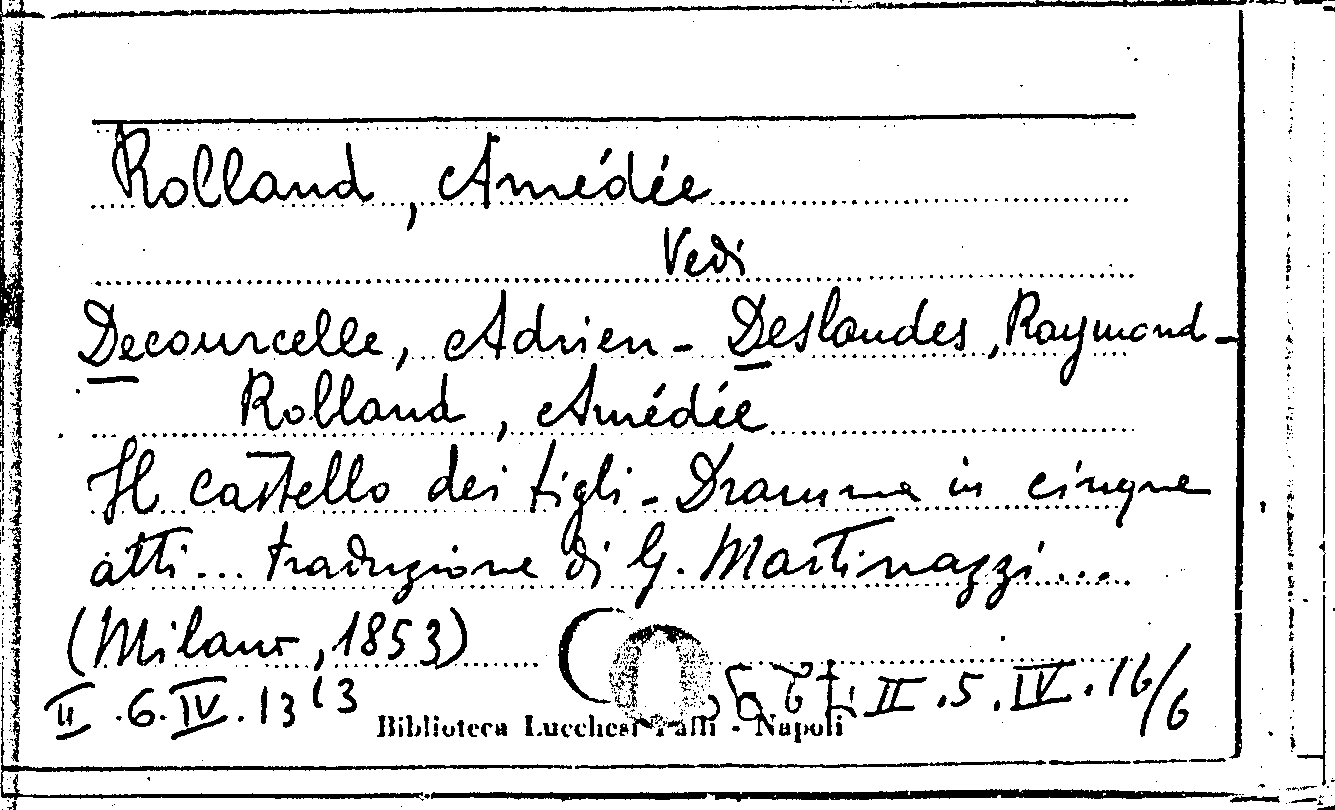 Rolland, Amédée
Vedi
Decourcelle, Adrien - Deslandes, Raymond -
Rolland, Amédée
Il castello dei tigli - Dramma in cinque
atti... traduzione di G. Martinazzi...
(Milano, 1853)
II.6.IV.13(3 II.5.IV.16/6
Biblioteca Lucchesi Palli - Napoli